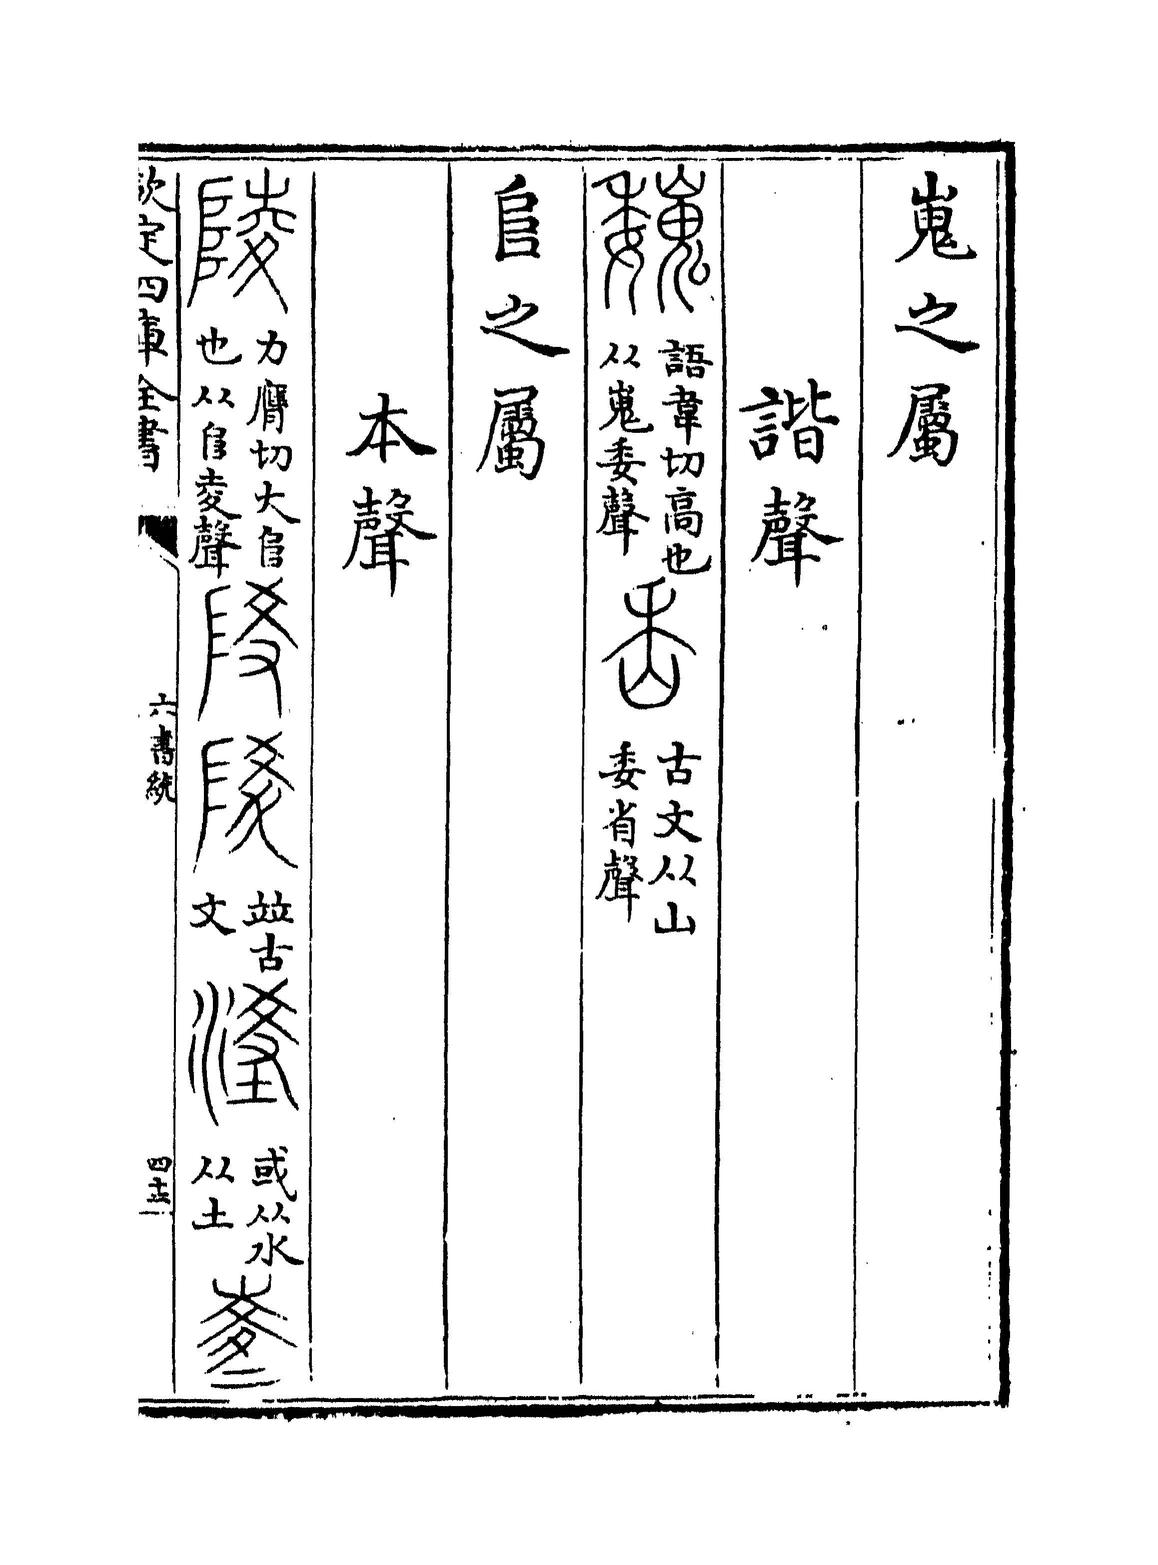 嵬之屬
諧聲
巍語韋切高也从嵬委聲 古文从山委省聲
𠂤之屬
本聲
陵力膺切大𠂤也从𠂤夌聲 並古文 或从水从土
欽定四庫全書 六書統 四十三